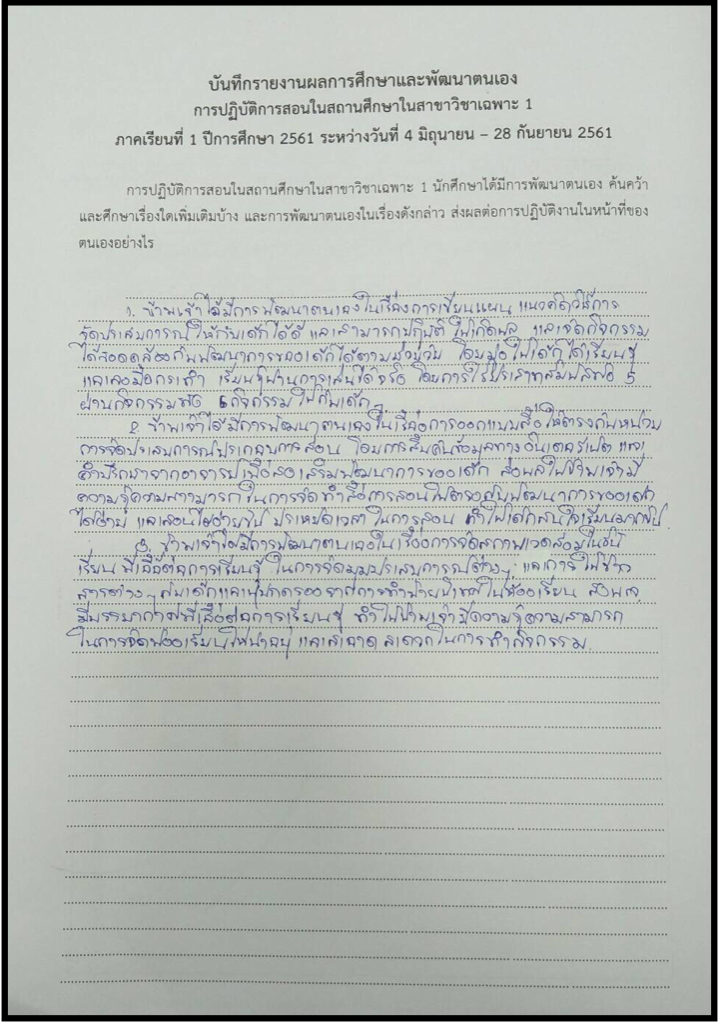 บันทึกรายงานผลการศึกษาและพัฒนาตนเอง
การปฏิบัติการสอนในสถานศึกษาในสาขาวิชาเฉพาะ 1
ภาคเรียนที่ 1 ปีการศึกษา 2561 ระหว่างวันที่ 4 มิถุนายน – 28 กันยายน 2561
การปฏิบัติการสอนในสถานศึกษาในสาขาวิชาเฉพาะ 1 นักศึกษาได้มีการพัฒนาตนเอง ค้นคว้า
และศึกษาเรื่องใดเพิ่มเติมบ้าง และการพัฒนาตนเองในเรื่องดังกล่าว ส่งผลต่อการปฏิบัติงานในหน้าที่ของ
ตนเองอย่างไร
1. ข้าพเจ้าได้มีการพัฒนาตนเองในเรื่องการเขียนแผน แนวคิดวิธีการ
จัดประสบการณ์ให้กับเด็กได้ดี และสามารถปฏิบัติ ให้เกิดผล และจัดกิจกรรม
ได้สอดคล้องกับพัฒนาการของเด็กได้ตามช่วงวัย โดยมุ่งให้เด็กได้เรียนรู้
และลงมือกระทำ เรียนรู้ผ่านการเล่นได้จริง โดยการใช้ประสาทสัมผัสทั้ง 5
ผ่านกิจกรรมทั้ง 6 กิจกรรมให้กับเด็ก
2. ข้าพเจ้าได้มีการพัฒนาตนเองในเรื่องการออกแบบสื่อให้ตรงกับหน่วย
การจัดประสบการณ์ประกอบการสอน โดยการสืบค้นข้อมูลทางอินเตอร์เน็ต และ
คำปรึกษาจากอาจารย์เพื่อส่งเสริมพัฒนาการของเด็ก ส่งผลให้ข้าพเจ้ามี
ความรู้ความสามารถในการจัดทำสื่อการสอนให้ตรงกับพัฒนาการของเด็ก
ได้ง่าย และสอนได้ง่ายขึ้น ประหยัดเวลาในการสอน ทำให้เด็กสนใจเรียนมากขึ้น
3. ข้าพเจ้าได้มีการพัฒนาตนเองในเรื่องการจัดสภาพแวดล้อมในชั้น
เรียน ที่เอื้อต่อการเรียนรู้ ในการจัดมุมประสบการณ์ต่างๆ และการให้ข่าว
สารต่างๆ กับเด็กและผู้ปกครอง จากการทำป้ายนิเทศในห้องเรียน ส่งผล
มีบรรยากาศที่เอื้อต่อการเรียนรู้ ทำให้ข้าพเจ้ามีความรู้ความสามารถ
ในการจัดห้องเรียนให้น่าอยู่ และสะอาด สะดวกในการทำกิจกรรม